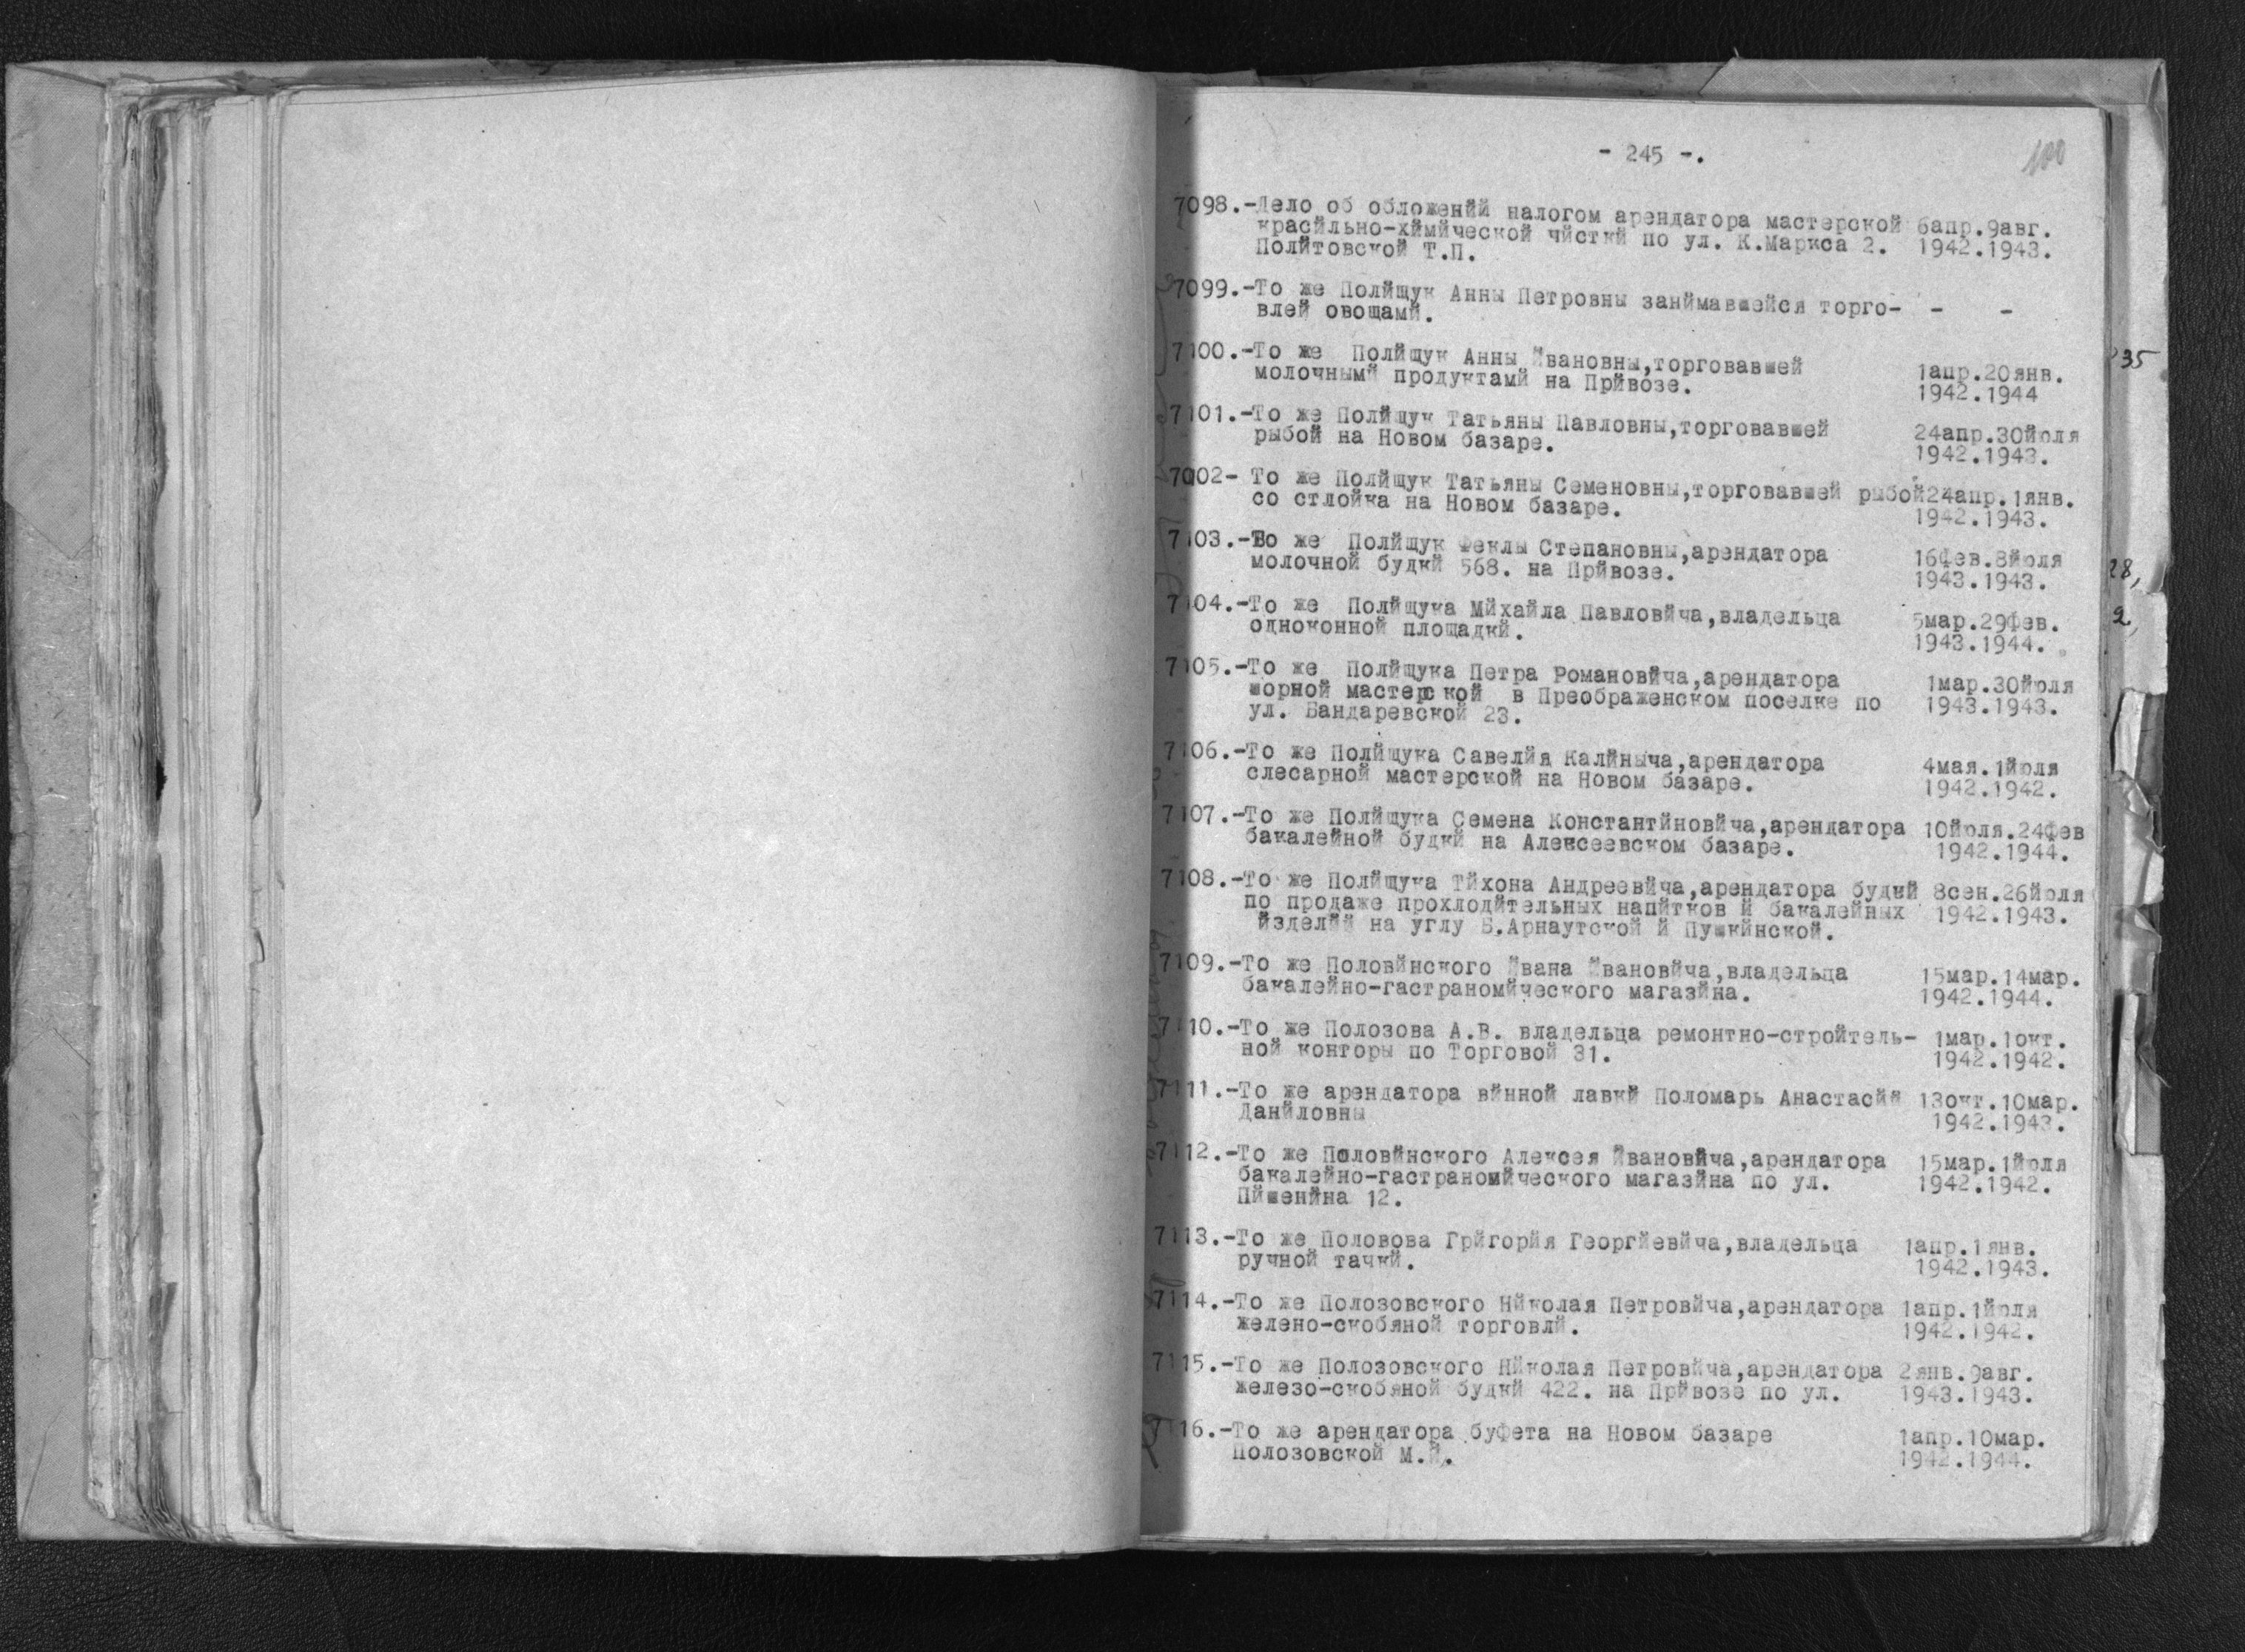 - 245 -.
100
7098.-Дело об обложенйй налогом арендатора мастерской 6апр.9авг.
красйльно-хймйческой чйсткй по ул. К.Маркса 2. 1942.1943.
Полйтовской Т.П.
7099.-То же Полйщук Анны Петровны занймавшейся торго- - -
влей овощамй.
7100.-То же Полйщук Анны Йвановны,торговавшей 1апр.20янв.
молочнымй продуктамй на Прйвозе. 1942.1944
35
7101.-То же Полйщук Татьяны Павловны,торговавшей 24апр.30йюля
рыбой на Новом базаре. 1942.1943.
7002- То же Полйщук Татьяны Семеновны,торговавшей рыбой24апр.1янв.
со стлойка на Новом базаре. 1942.1943.
7103.-То же Полйщук Феклы Степановны,арендатора 16фев.8йюля
молочной будкй 568. на Прйвозе. 1943.1943.
28,
7104.-То же Полйщука Мйхайла Павловйча,владельца 5мар.29фев.
одноконной площадкй. 1943.1944.
2,
7105.-То же Полйщука Петра Романовйча,арендатора 1мар.30йюля
шорной мастерской в Преображенском поселке по 1943.1943.
ул. Бандаревской 23.
7106.-То же Полйщука Савелйя Калйныча,арендатора 4мая.1йюля
слесарной мастерской на Новом базаре. 1942.1942.
7107.-То же Полйщука Семена Константйновйча,арендатора 10йюля.24фев
бакалейной будкй на Алексеевском базаре. 1942.1944.
7108.-То же Полйщука Тйхона Андреевйча,арендатора будкй 8сен.26йюля
по продаже прохлодйтельных напйтков й бакалейных 1942.1943.
йзделйй на углу Б.Арнаутской й Пушкйнской.
7109.-То же Половйнского Йвана Йвановйча,владельца 15мар.14мар.
бакалейно-гастраномйческого магазйна. 1942.1944.
7110.-То же Полозова А.В. владельца ремонтно-стройтель- 1мар.1окт.
ной конторы по Торговой 31. 1942.1942.
7111.-То же арендатора вйнной лавкй Поломарь Анастасйй 13окт.10мар.
Данйловны 1942.1943.
7112.-То же Половйнского Алексея Йвановйча,арендатора 15мар.1йюля
бакалейно-гастраномйческого магазйна по ул. 1942.1942.
Пйшенйна 12.
7113.-То же Половова Грйгорйя Георгйевйча,владельца 1апр.1янв.
ручной тачкй. 1942.1943.
7114.-То же Полозовского Нйколая Петровйча,арендатора 1апр.1йюля
желено-скобяной торговлй. 1942.1942.
7115.-То же Полозовского Нйколая Петровйча,арендатора 2янв.9авг.
железо-скобяной будкй 422. на Прйвозе по ул. 1943.1943.
7116.-То же арендатора буфета на Новом базаре 1апр.10мар.
Полозовской М.Й. 1942.1944.